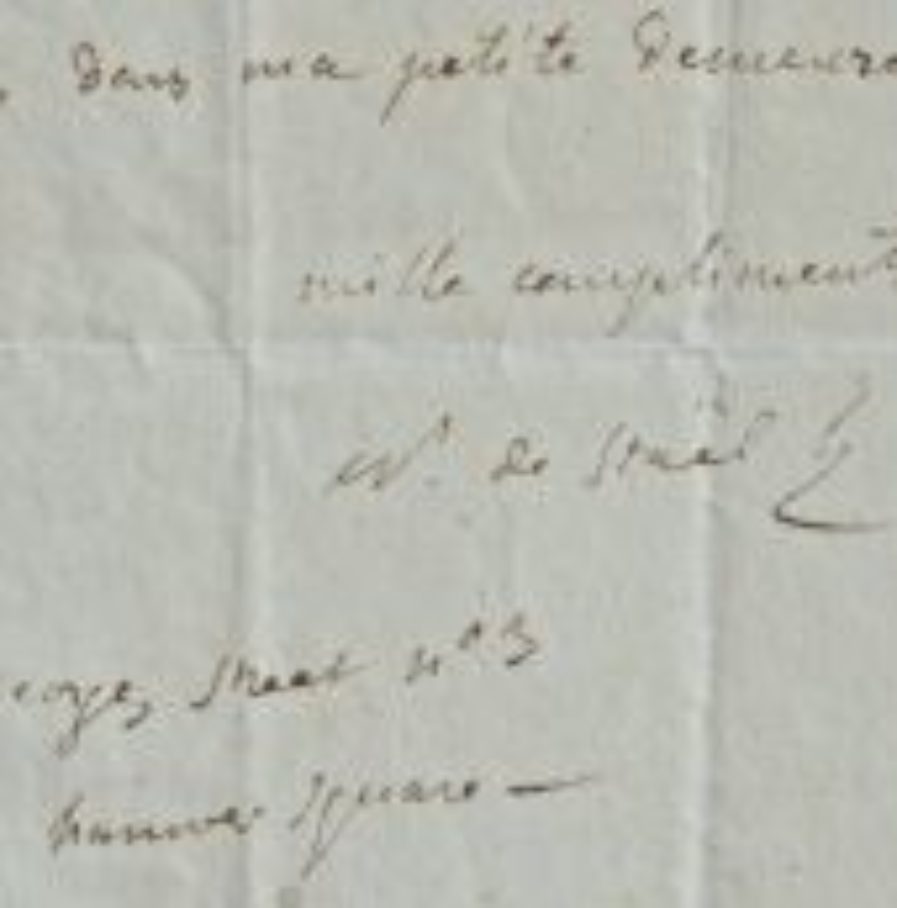 , dans ma petite demeure
mille compliments
N. de Staël
eorges Street n° 3
hanover Square —